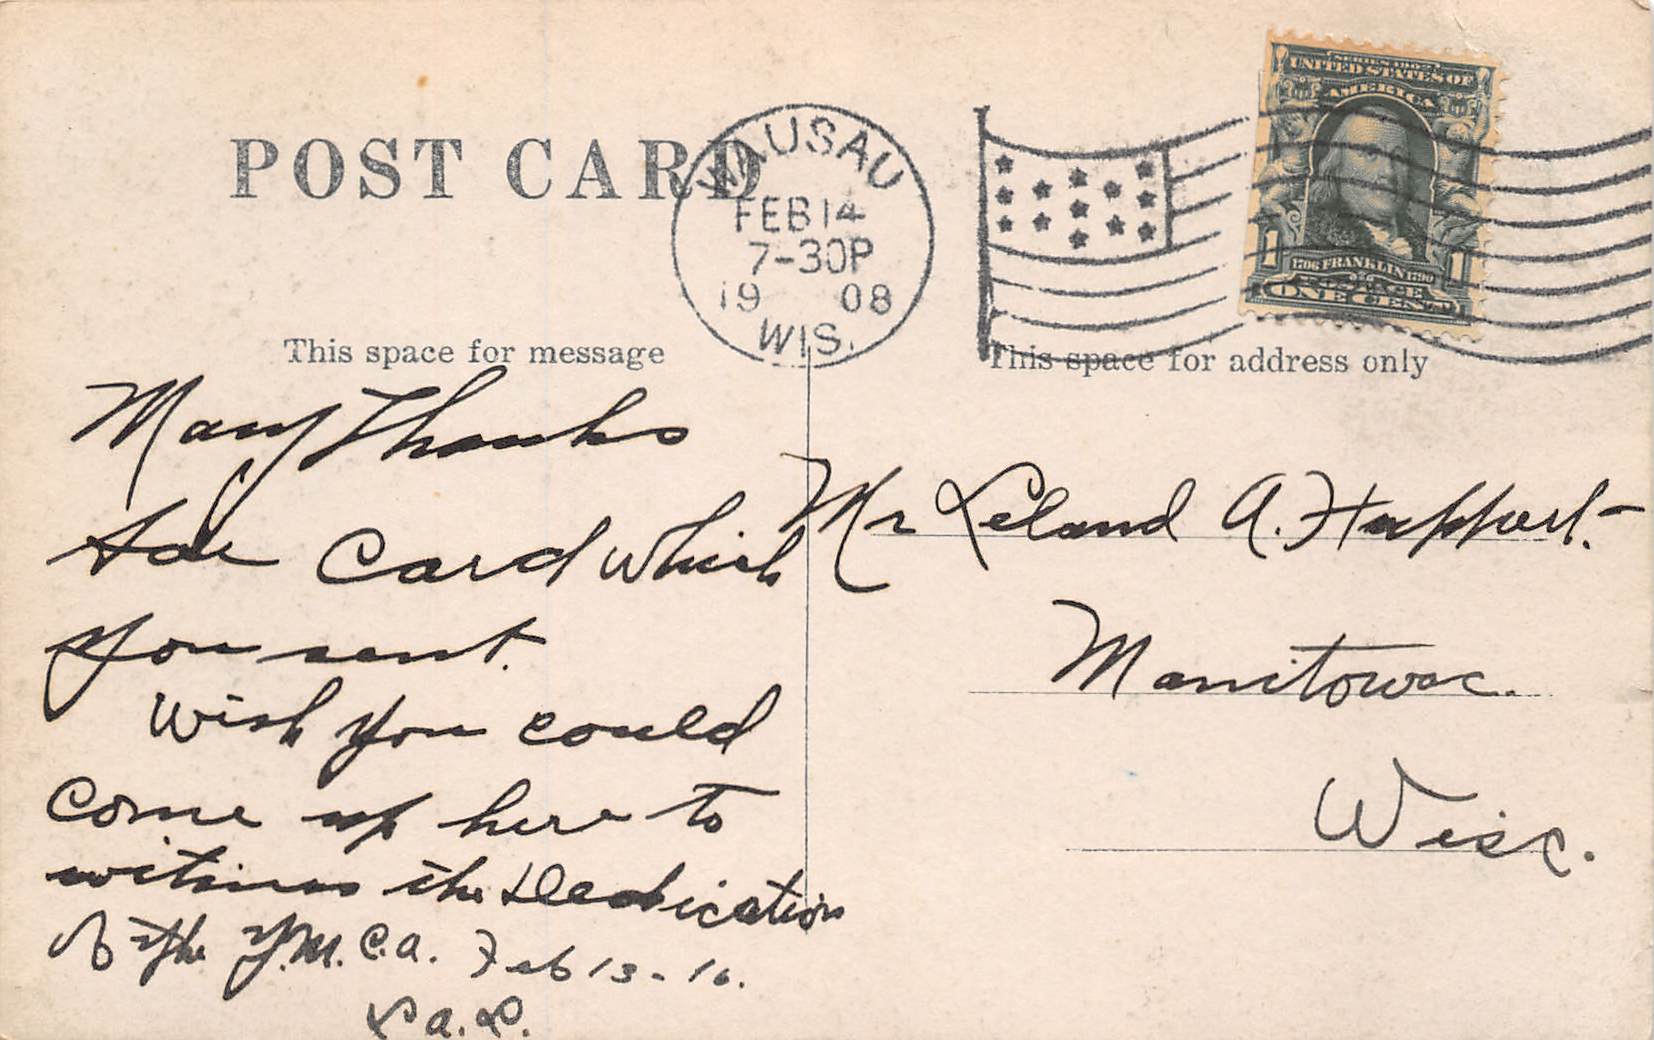 POST CARD
WAUSAU
FEB 14
7-30P
19 08
WIS.
SERIES 1902
UNITED STATES OF
AMERICA
1 1
1706 FRANKLIN 1790
POSTAGE
ONE CENT
This space for message
This space for address only
Many Thanks
for Card which
you sent.
Wish you could
come up here to
witness the Dedication
of the Y.M.C.A. Feb 13-16.
L. A. L.
Mr Leland A. Huppert.
Manitowoc.
Wisc.